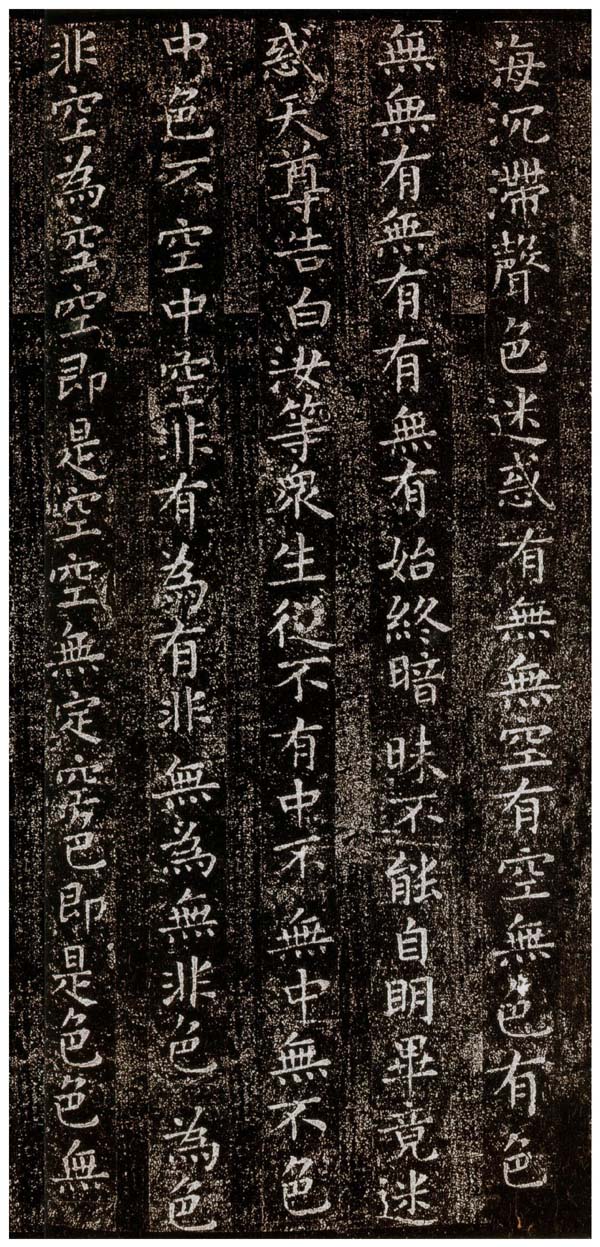 海沉滯聲色迷惑有無無空有空無色有色
無無有無有有無有始終暗昧不能自眀畢竟迷
惑天尊告白汝等衆生從不有中不無中無不色
中色不空中空非有為有非無為無非色為色
非空為空空即是空空無定空色即是色色無